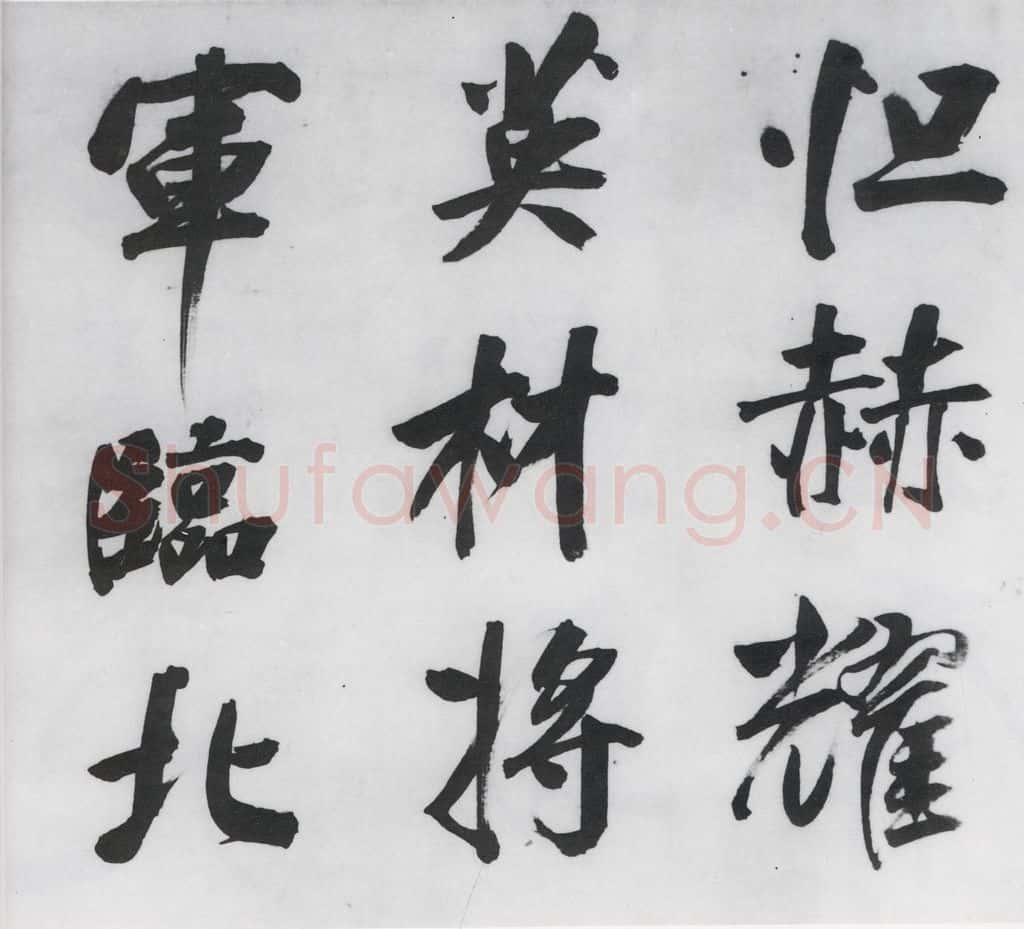 怛赫耀
英材將
軍臨北
Shufawang.CN